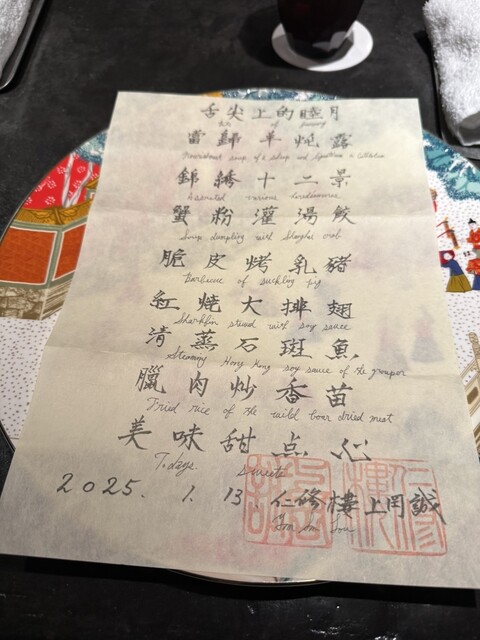 舌尖上的睦月
當歸羊炖露
soup of a sheep and
錦繡十二景
Assorted various
蟹粉灌湯餃
Soup dumpling with Shanghai crab
脆皮烤乳豬
Barbecue of suckling pig
紅燒大排翅
Sharkfin stewed with soy sauce
清蒸石斑魚
Steaming Hong Kong soy sauce of the
臘肉炒香苗
Fried rice of the wild boar dried meat
美味甜点心
Todays Sweets
2025. 1. 13. 仁修樓 上岡誠